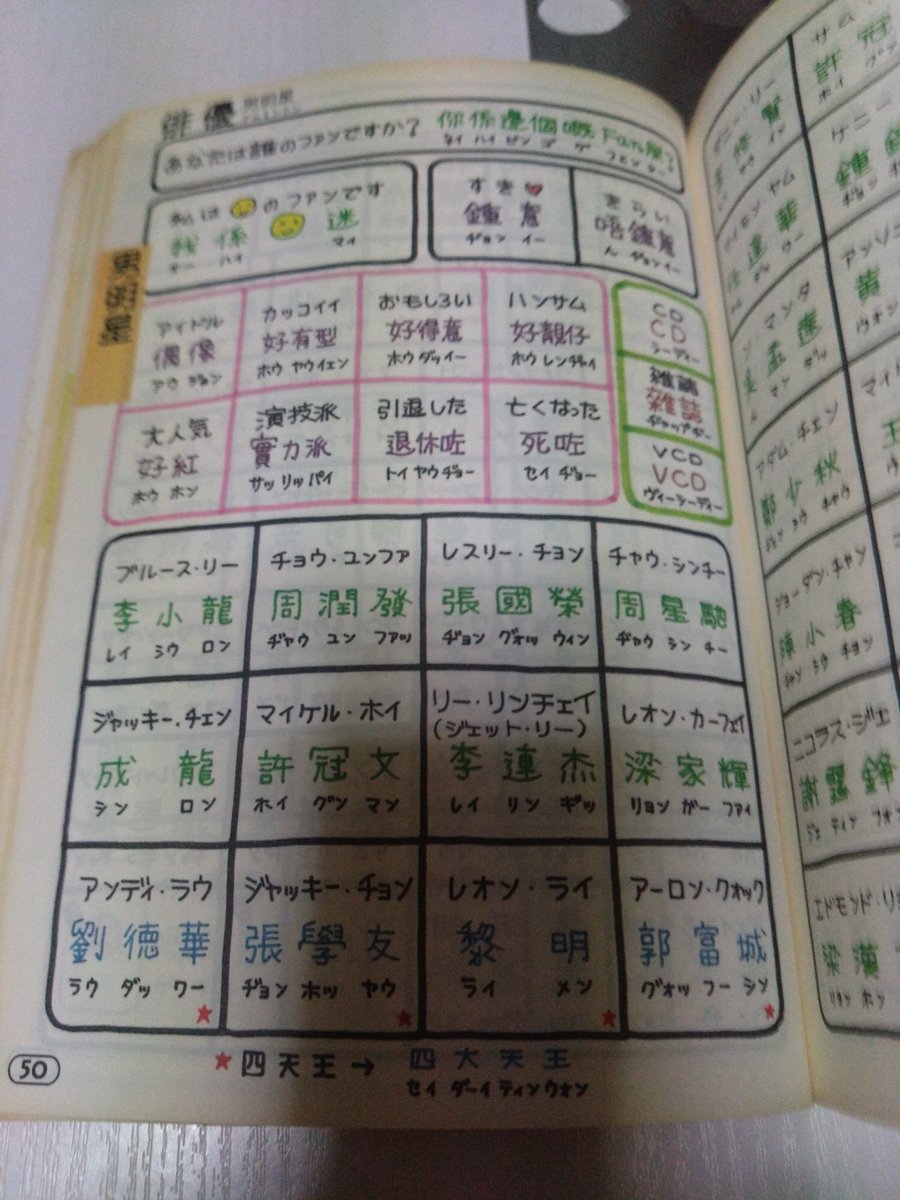 俳優 男明星
あなたは誰のファンですか? 你係邊個嘅Fan屎?
私は のファンです
我係 迷
ハイ マイ
すき
鍾意
ヂョン イー
きらい
唔鍾意
ん ヂョンイー
男明星
アイドル
偶像
アウ ジョン
カッコイイ
好有型
ホウ ヤウイェン
おもしろい
好得意
ホウ ダッイー
ハンサム
好靚仔
ホウ レンヂャイ
CD
CD
シーディー
大人気
好紅
ホウ ホン
演技派
實力派
サッ リッ パイ
引退した
退休咗
トイ ヤウヂョー
亡くなった
死咗
セイ ヂョー
雑誌
雜誌
ヂャップヂー
VCD
VCD
ヴィーシーディー
ブルース・リー
李小龍
レイ シウ ロン
チョウ・ユンファ
周潤發
ヂャウ ユン ファッ
レスリー・チョン
張國榮
ヂョン グォッ ウィン
チャウ・シンチー
周星馳
ヂャウ シン チー
ジャッキー・チェン
成龍
シン ロン
マイケル・ホイ
許冠文
ホイ グン マン
リー・リンチェイ
(ジェット・リー)
李連杰
レイ リン ギッ
レオン・カーフェイ
梁家輝
リョン ガー ファイ
アンディ・ラウ
劉德華
ラウ ダッ ワー
★
ジャッキー・チョン
張學友
ヂョン ホッ ヤウ
★
レオン・ライ
黎明
ライ メン
★
アーロン・クォック
郭富城
グオッ フー シン
★
★四天王→ 四大天王
セイ ダーイ ティン ウォン
50
許冠
ホイ グン
ケニー
鍾鎮
アダム・チェン
鄭少秋
ヂェン シウ チャウ
ジョーダン・チャン
陳小春
チャン シウ チョン
ニコラス・ジェ
謝霆鋒
ジェ ティン フォン
エドモンド・リ
梁漢
リョン ホン